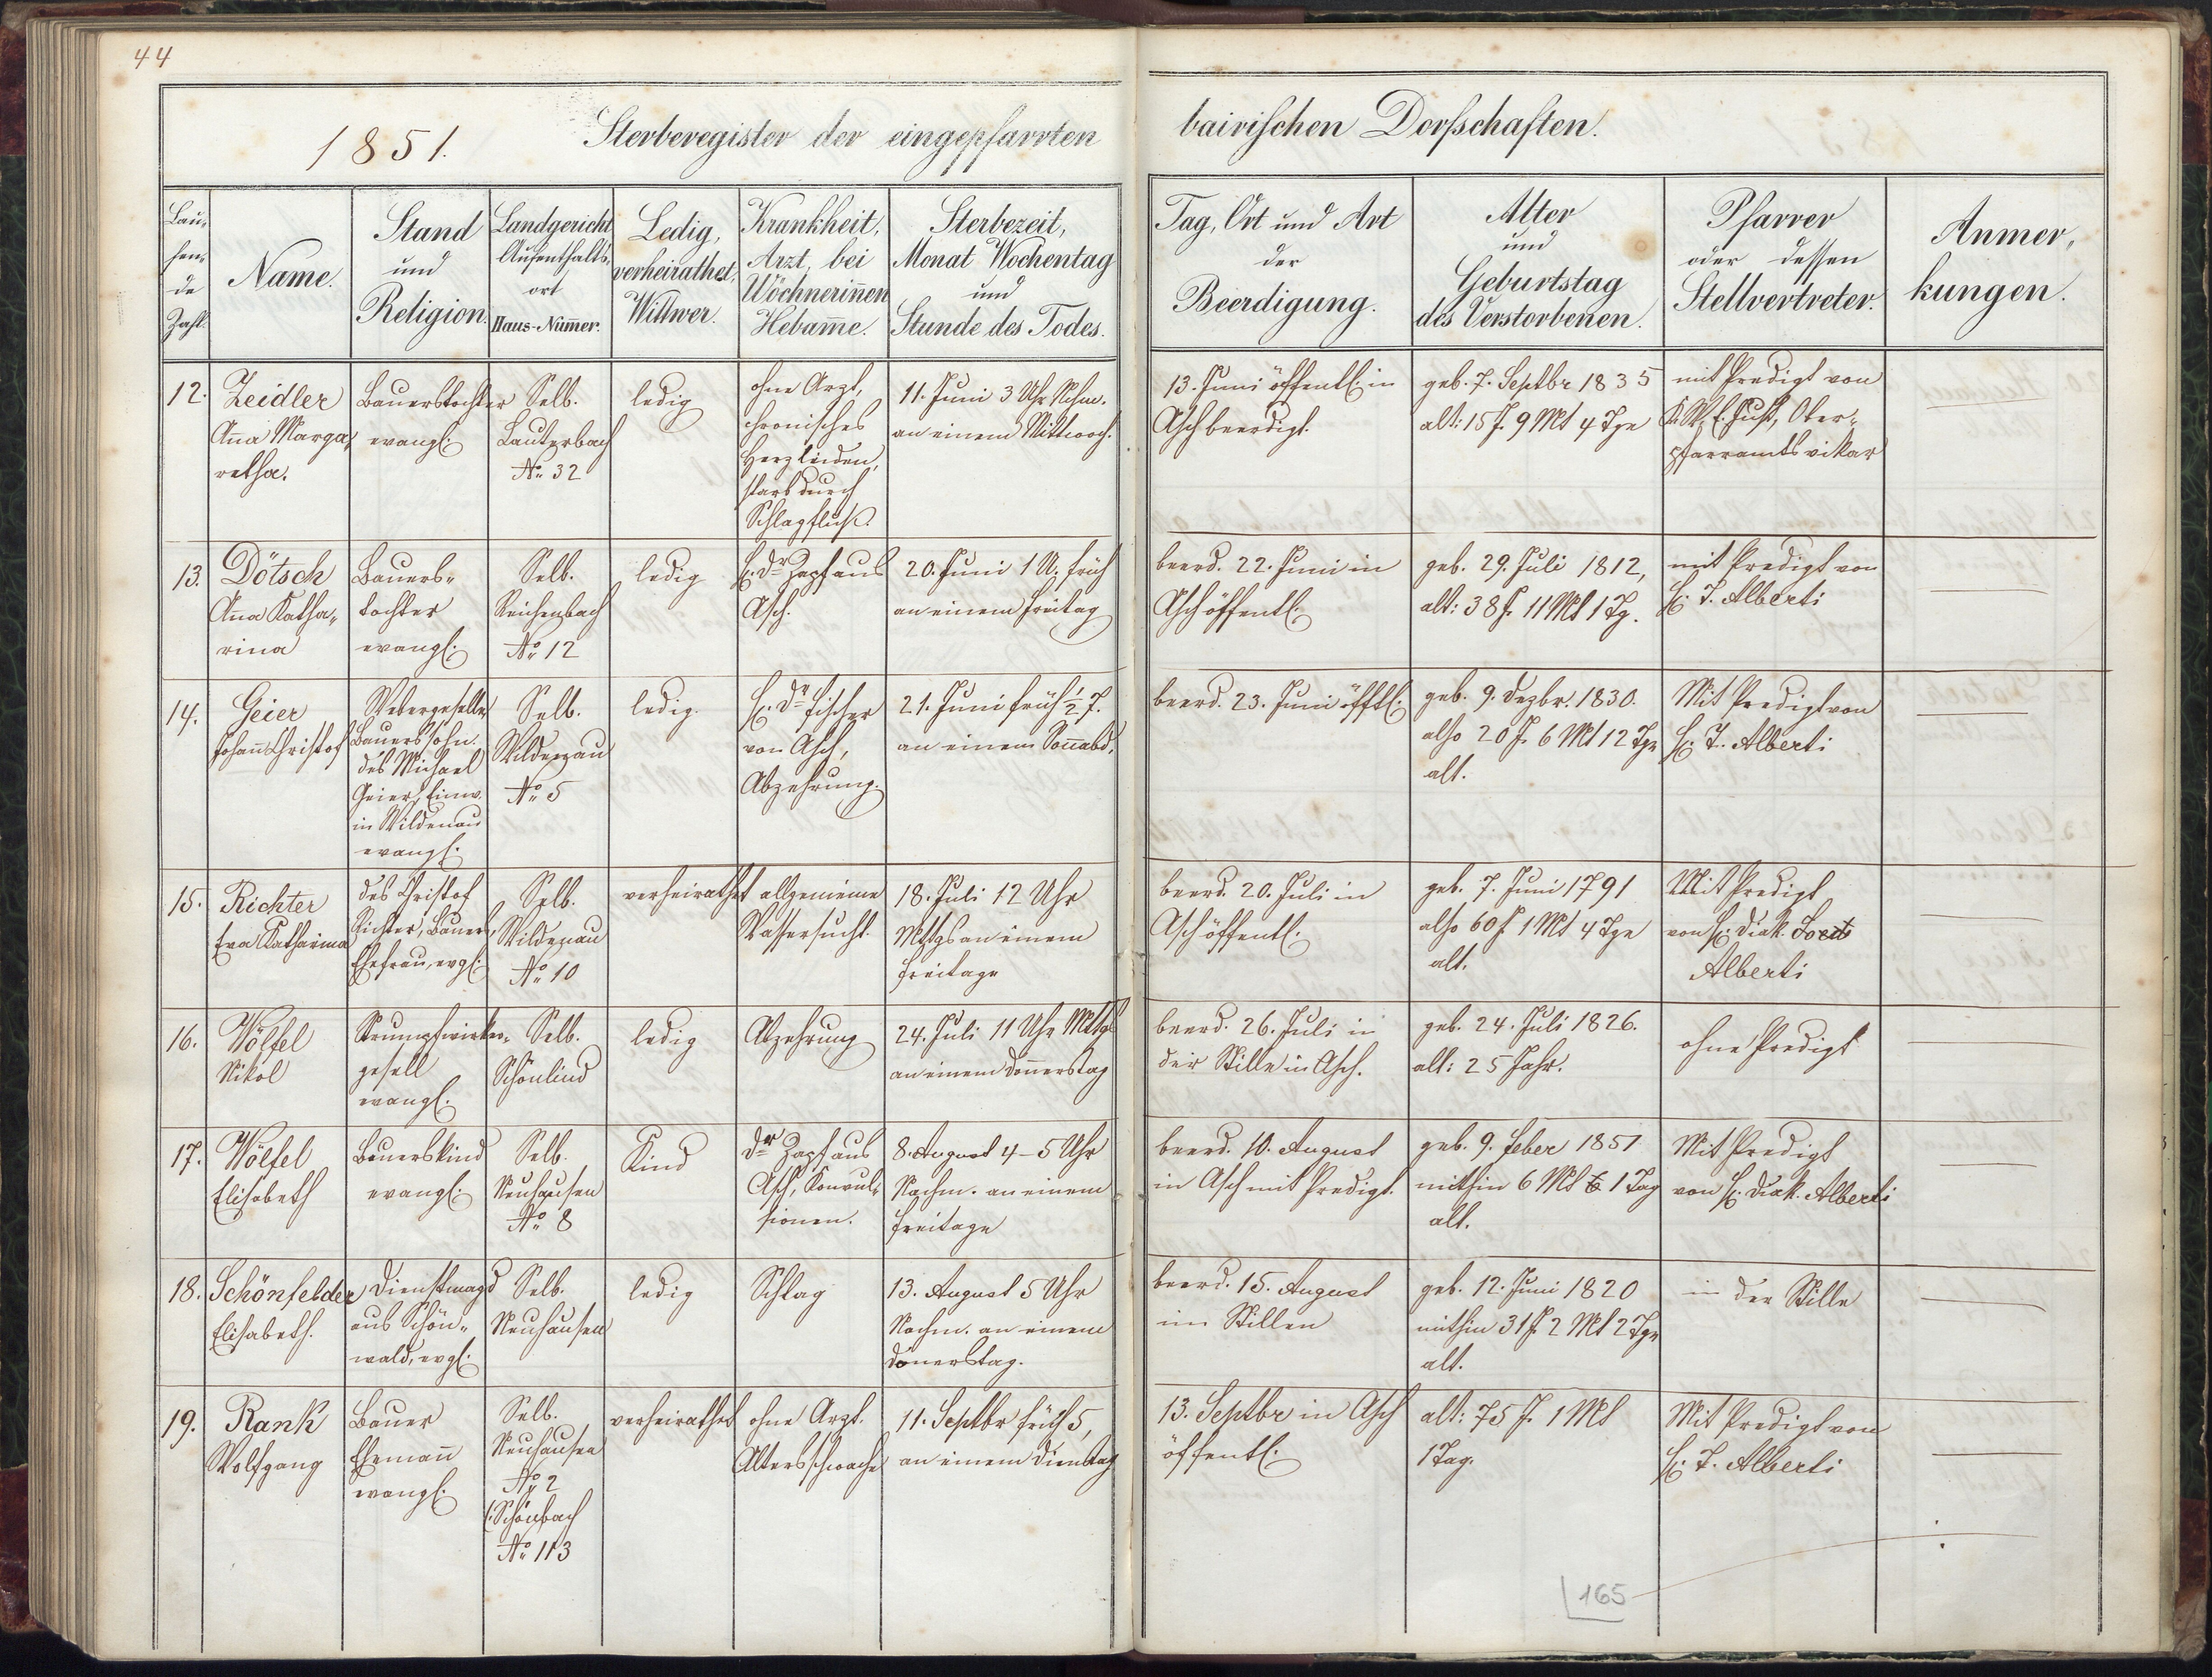 44
1851. Sterberegister der eingepfarrten bairischen Dorfschaften.
Lau-
fen-
de
Zahl.
Name.
Stand
und
Religion.
Landgericht
Aufenthalts-
ort
Haus-Num̄er.
Ledig,
verheirathet,
Wittwer.
Krankheit,
Arzt, bei
Wöchnerin̄en
Hebam̄e.
Sterbezeit,
Monat Wochentag
und
Stunde des Todes.
Tag, Ort und Art
der
Beerdigung.
Alter
und
Geburtstag
des Verstorbenen.
Pfarrer
oder dessen
Stellvertreter.
Anmer-
kungen.
12.
Zeidler
An̄a Marga-
retha.
Bauerstochter
evangl.
Selb.
Lauterbach
No 32
ledig
ohne Arzt,
chronisches
Herzleiden,
starb durch
Schlagfluß.
11. Juni 3 Uhr Nchm.
an einem Mittwoch.
13. Juni öffentl. in
Asch beerdigt.
geb. 7. Septbr 1835
alt: 15 J. 9 Mt 4 Tge
mit Predigt von
Just, Ober-
pfarramtsvikar
13.
Dötsch
An̄a Katha-
rina
Bauers-
tochter
evangl.
Selb.
Reichenbach
No 12
ledig
H. Dr Zapf aus
Asch.
20. Juni 1 U. früh
an einem Freitag
beerd. 22. Juni in
Asch öffentl.
geb. 29. Juli 1812,
alt: 38 J. 11 Mt 1 Tg.
mit Predigt von
H. T. Alberti
14.
Geier
Johan̄ Christof
Webergeselle,
Bauerssohn.
des Michael
Geier, Einw.
in Wildenau
evangl.
Selb.
Wildenau
No 5
ledig.
H. Dr Fischer
von Asch,
Abzehrung.
21. Juni früh ½ 7.
an einem Son̄abd.
beerd. 23. Juni öfftl.
geb. 9. Dezbr. 1830.
also 20 J. 6 Mt 12 Tge
alt.
Mit Predigt von
H. T. Alberti
15.
Richter
Eva Katharina
des Christof
Richter, Bauers,
Ehefrau, evgl.
Selb.
Wildenau
No 10
verheirathet
allgemeine
Wassersucht.
18. Juli 12 Uhr
Mttgs an einem
Freitage
beerd. 20. Juli in
Asch öffentl.
geb. 7. Juni 1791
also 60 J 1 Mt 4 Tge
alt.
Mit Predigt
von H. Diak.
Alberti
16.
Wölfel
Nikol
Strumpfwirker-
gesell
evangl.
Selb.
Schönlind
ledig
Abzehrung
24. Juli 11 Uhr Mttgs
an einem Don̄erstag
beerd. 26. Juli in
der Stille in Asch.
geb. 24. Juli 1826.
alt: 25 Jahr.
ohne Predigt
17.
Wölfel
Elisabeth
Bauerskind
evangl.
Selb.
Neuhausen
No 8
Kind
Dr Zapf aus
Asch, Konvul-
sionen.
8. August 4–5 Uhr
Nachm. an einem
Freitage
beerd. 10. August
in Asch mit Predigt.
geb. 9. Feber 1851
mithin 6 Mt 1 Tag
alt.
Mit Predigt
von H. Diak. Alberti
18.
Schönfelder
Elisabeth.
Dienstmagd
aus Schön-
wald, evgl.
Selb.
Neuhausen
ledig
Schlag
13. August 5 Uhr
Nachm. an einem
Don̄erstag.
beerd. 15. August
im Stillen
geb. 12. Juni 1820
mithin 31 J. 2 Mt 2 Tge
alt.
in der Stille
19.
Rank
Wolfgang
Bauer
Eheman̄
evangl.
Selb.
Neuhausen
No 2
(: Schönbach
No 113
verheirathet
ohne Arzt.
Altersschwäche
11. Septbr früh 5,
an einem Dienstag
13. Septbr in Asch
öffentl.
alt: 75 J. 1 Mt
1 Tag.
Mit Predigt von
H. T. Alberti
165